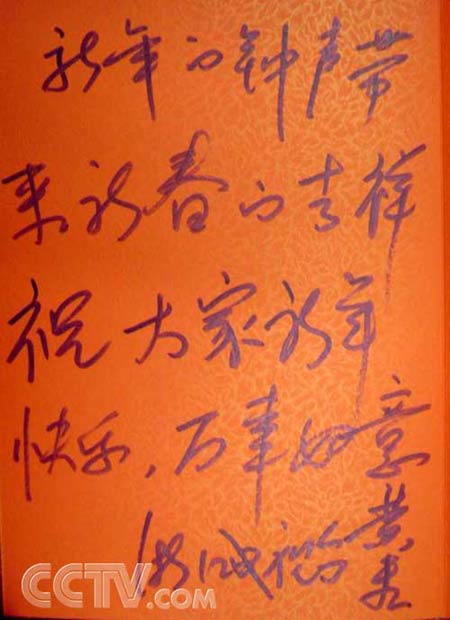 新年的钟声带
来新春的吉祥
祝大家新年
快乐，万事如意
CCTV.com